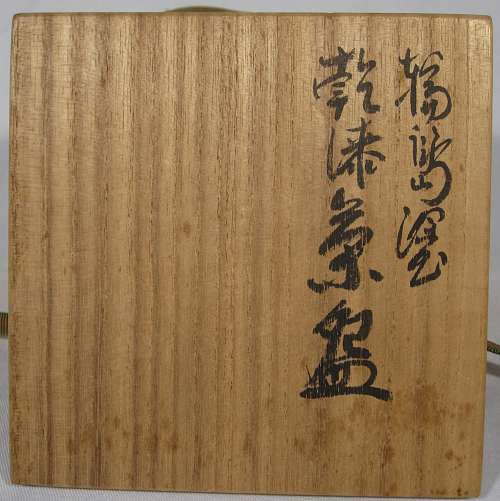 輪島塗
乾漆菓盆